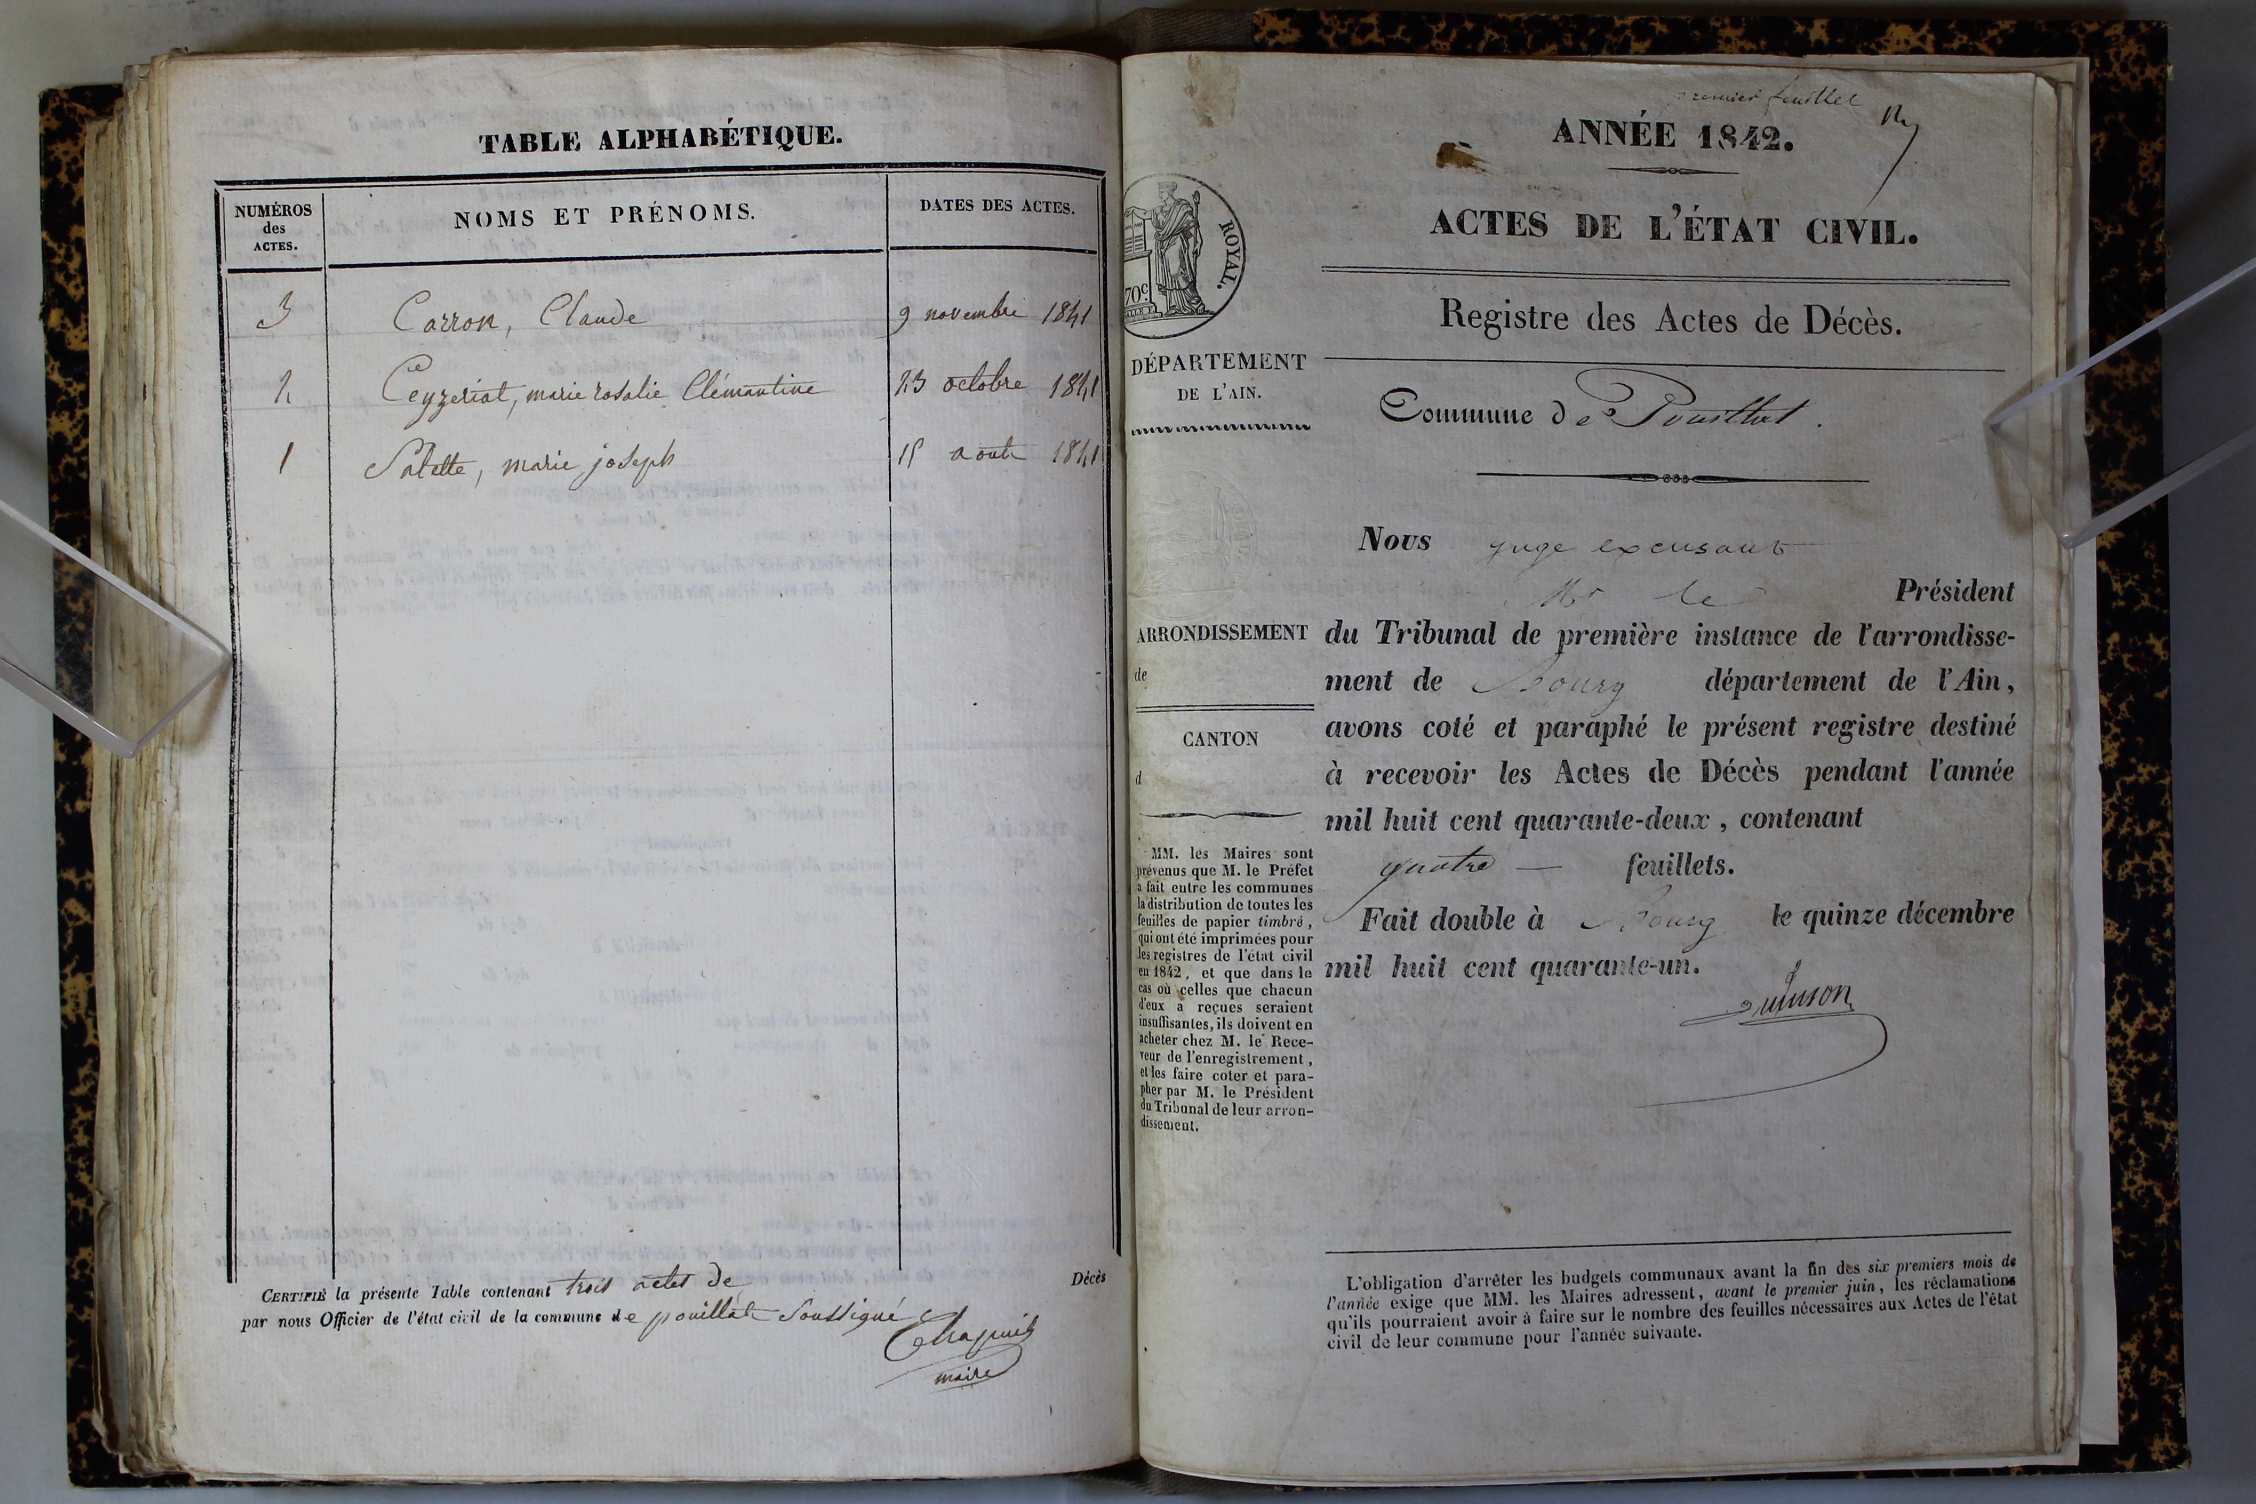 TABLE ALPHABÉTIQUE.
NUMÉROS
des
ACTES.
NOMS ET PRÉNOMS.
DATES DES ACTES.
3 Carron, Claude 9 novembre 1841
2 Ceyzeriat, marie rosalie Clémantine 23 octobre 1841
1 Salette, marie joseph 15 aout 1841
CERTIFIÉ la présente Table contenant trois actes de Décès
par nous Officier de l'état civil de la commune de pouillat Soussigné
Chapuis
maire
premier feuillet
ANNÉE 1842.
ACTES DE L'ÉTAT CIVIL.
ROYAL.
70c
Registre des Actes de Décès.
DÉPARTEMENT
DE L'AIN.
Commune de Pouillat.
Nous juge excusant
Mr le Président
ARRONDISSEMENT
de
CANTON
d
du Tribunal de première instance de l'arrondisse-
ment de Bourg département de l'Ain,
avons coté et paraphé le présent registre destiné
à recevoir les Actes de Décès pendant l'année
mil huit cent quarante-deux, contenant
quatre — feuillets.
Fait double à Bourg le quinze décembre
mil huit cent quarante-un.
MM. les Maires sont
prévenus que M. le Préfet
a fait entre les communes
la distribution de toutes les
feuilles de papier timbré,
qui ont été imprimées pour
les registres de l'état civil
en 1842, et que dans le
cas où celles que chacun
d'eux a reçues seraient
insuffisantes, ils doivent en
acheter chez M. le Rece-
veur de l'enregistrement,
et les faire coter et para-
pher par M. le Président
du Tribunal de leur arron-
dissement.
L'obligation d'arrêter les budgets communaux avant la fin des six premiers mois de
l'année exige que MM. les Maires adressent, avant le premier juin, les réclamations
qu'ils pourraient avoir à faire sur le nombre des feuilles nécessaires aux Actes de l'état
civil de leur commune pour l'année suivante.